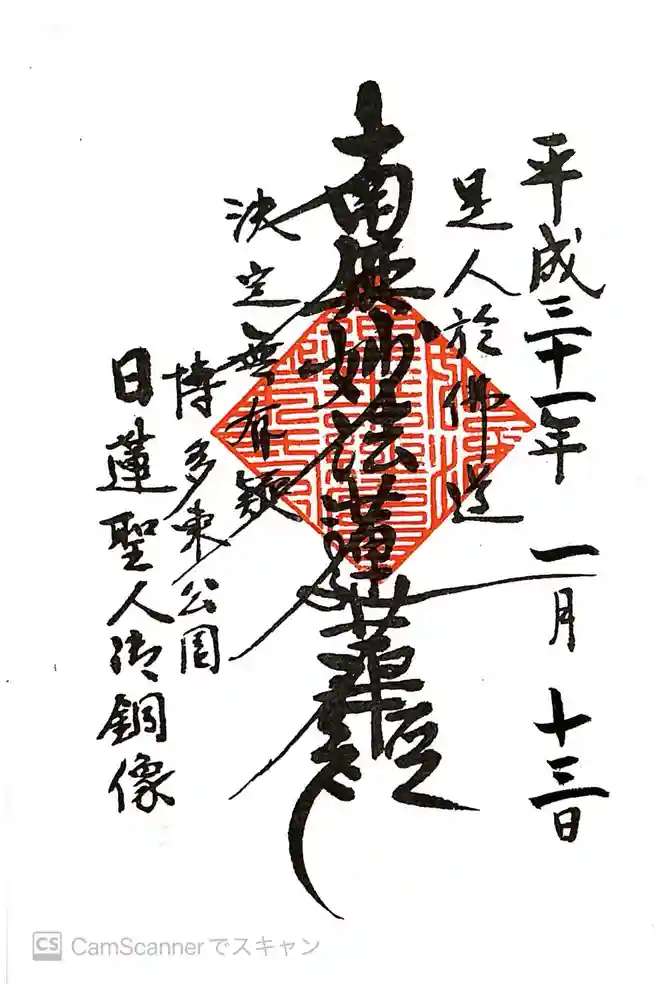 平成三十一年 一月 十三日
是人於佛道
南無妙法蓮華經
決定無有疑
博多東公園
日蓮聖人御銅像
CS CamScannerでスキャン